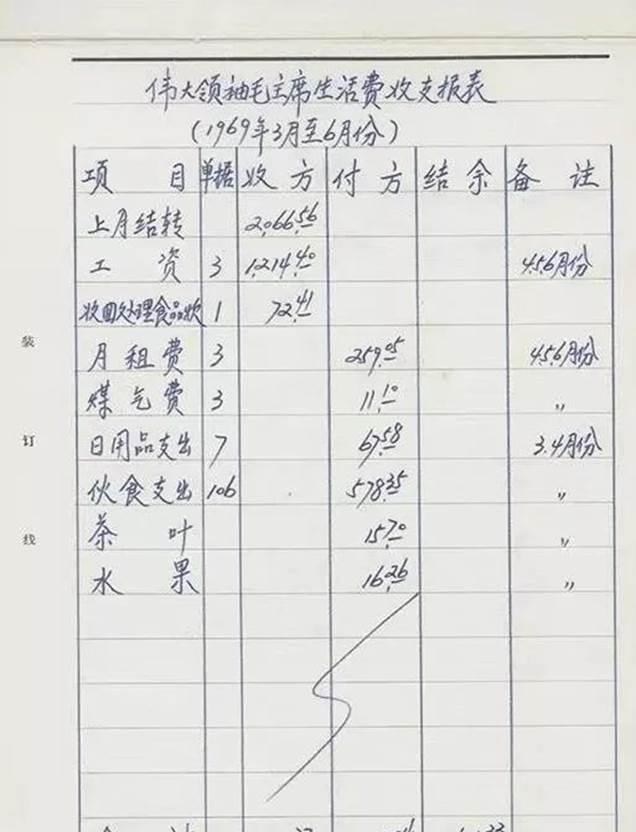 伟大领袖毛主席生活费收支报表
(1969年3月至6月份)
项 目 单据 收方 付方 结余 备注
上月结转 2,066.56
工 资 3 1,214.40 4.5.6月份
收回处理食品款 1 72.41
月租费 3 259.05 4.5.6月份
煤气费 3 11.10 〃
日用品支出 7 67.58 3.4月份
伙食支出 106 578.35 〃
茶 叶 15.70 〃
水 果 16.26 〃
装
订
线